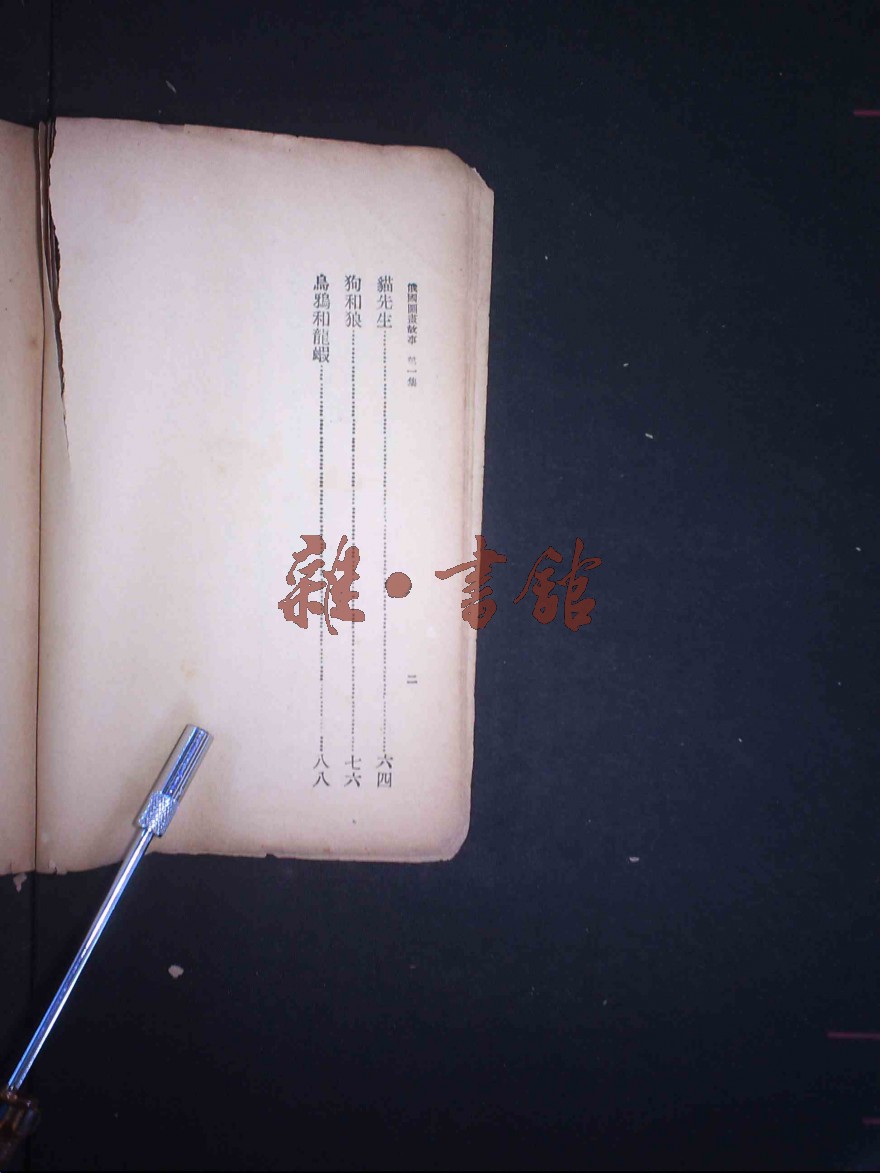 俄國圖畫故事 第一集
二
貓先生……六四
狗和狼……七六
烏鴉和龍蝦……八八
雜·書館